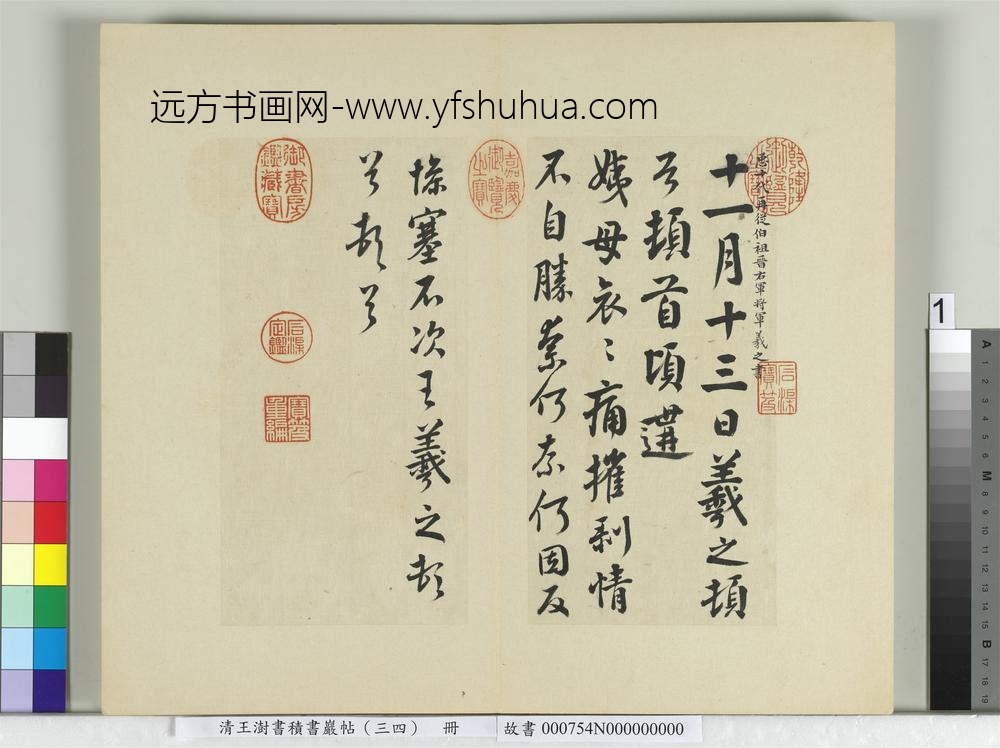 远方书画网-www.yfshuhua.com
乾隆御覽之寶
臣十代再從伯祖晉右軍將軍羲之書
石渠寶笈
十一月十三日羲之頓
首頓首頃遘
姨母哀〻痛摧剝情
不自勝奈何奈何因反
嘉慶御覽之寶
慘塞不次王羲之頓
首頓首
御書房鑑藏寶
石渠定鑑
寶笈重編
1
A 1 2 3 4 5 6 M 8 9 10 11 12 13 14 15 B 17 18 19
清王澍書積書巖帖（三四） 冊
故書 000754N000000000